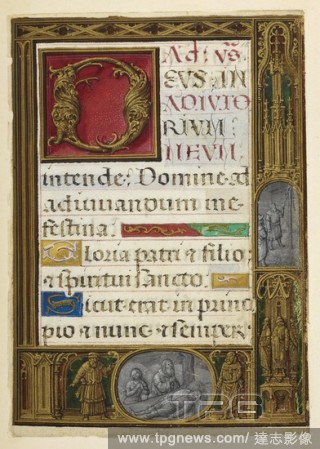 Ad vṡ
DEVS IN
ADIVTO
RIVM
MEVM
intende: Domine ad
adiuvandum me
festina:
Gloria patri & filio;
& spiritui sancto:
Sicut erat in princi
pio & nunc & semper
TPG
www.tpgnews.com / 達志影像